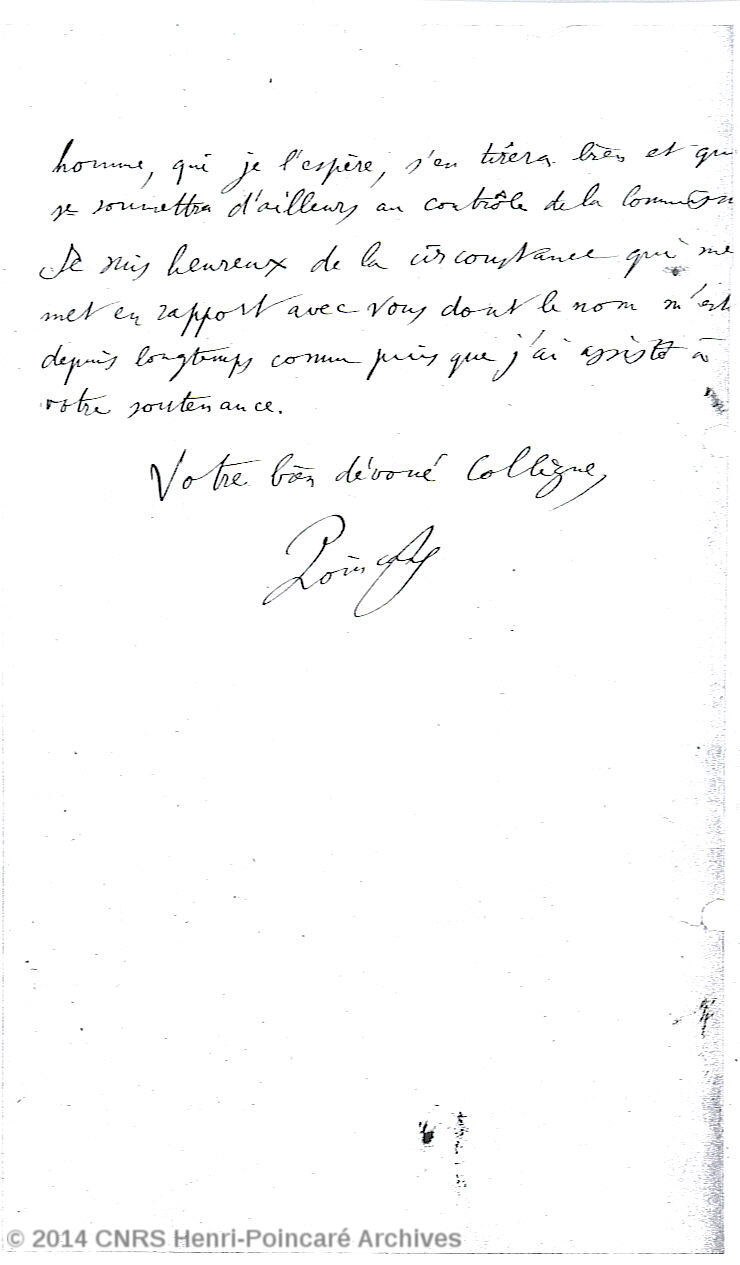 homme, qui je l'espère, s'en tirera bien et qu
se soumettra d'ailleurs au contrôle de la Commission
Je suis heureux de la circonstance qui me
met en rapport avec vous dont le nom m'est
depuis longtemps connu puis que j'ai assisté à
votre soutenance.
Votre bien dévoué Collègue,
Poincaré
© 2014 CNRS Henri-Poincaré Archives